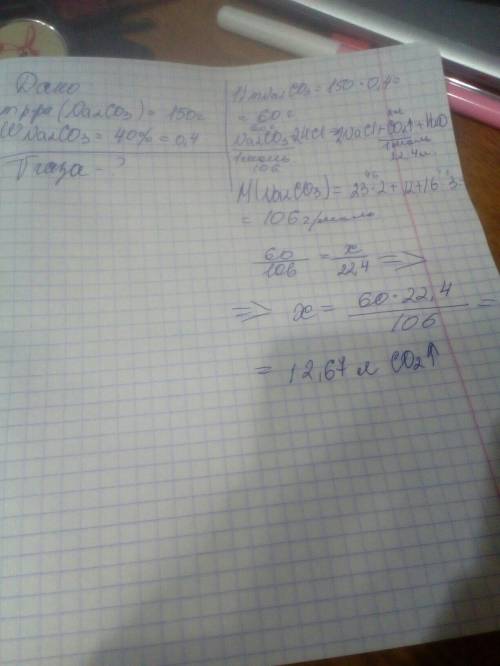 Дано
m р-ра (Na₂CO₃) = 150г
ω Na₂CO₃ = 40% = 0,4
V газа - ?
1) m Na₂CO₃ = 150 · 0,4 =
= 60 г
60г
Na₂CO₃ + 2HCl = 2NaCl + CO₂↑ + H₂O
1 моль
106
1 моль
22,4 л
M(Na₂CO₃) = 23·2 + 12 + 16·3 =
= 106 г/моль
60/106 = x/22,4 =>
=> x = 60·22,4/106 =
= 12,67 л CO₂↑